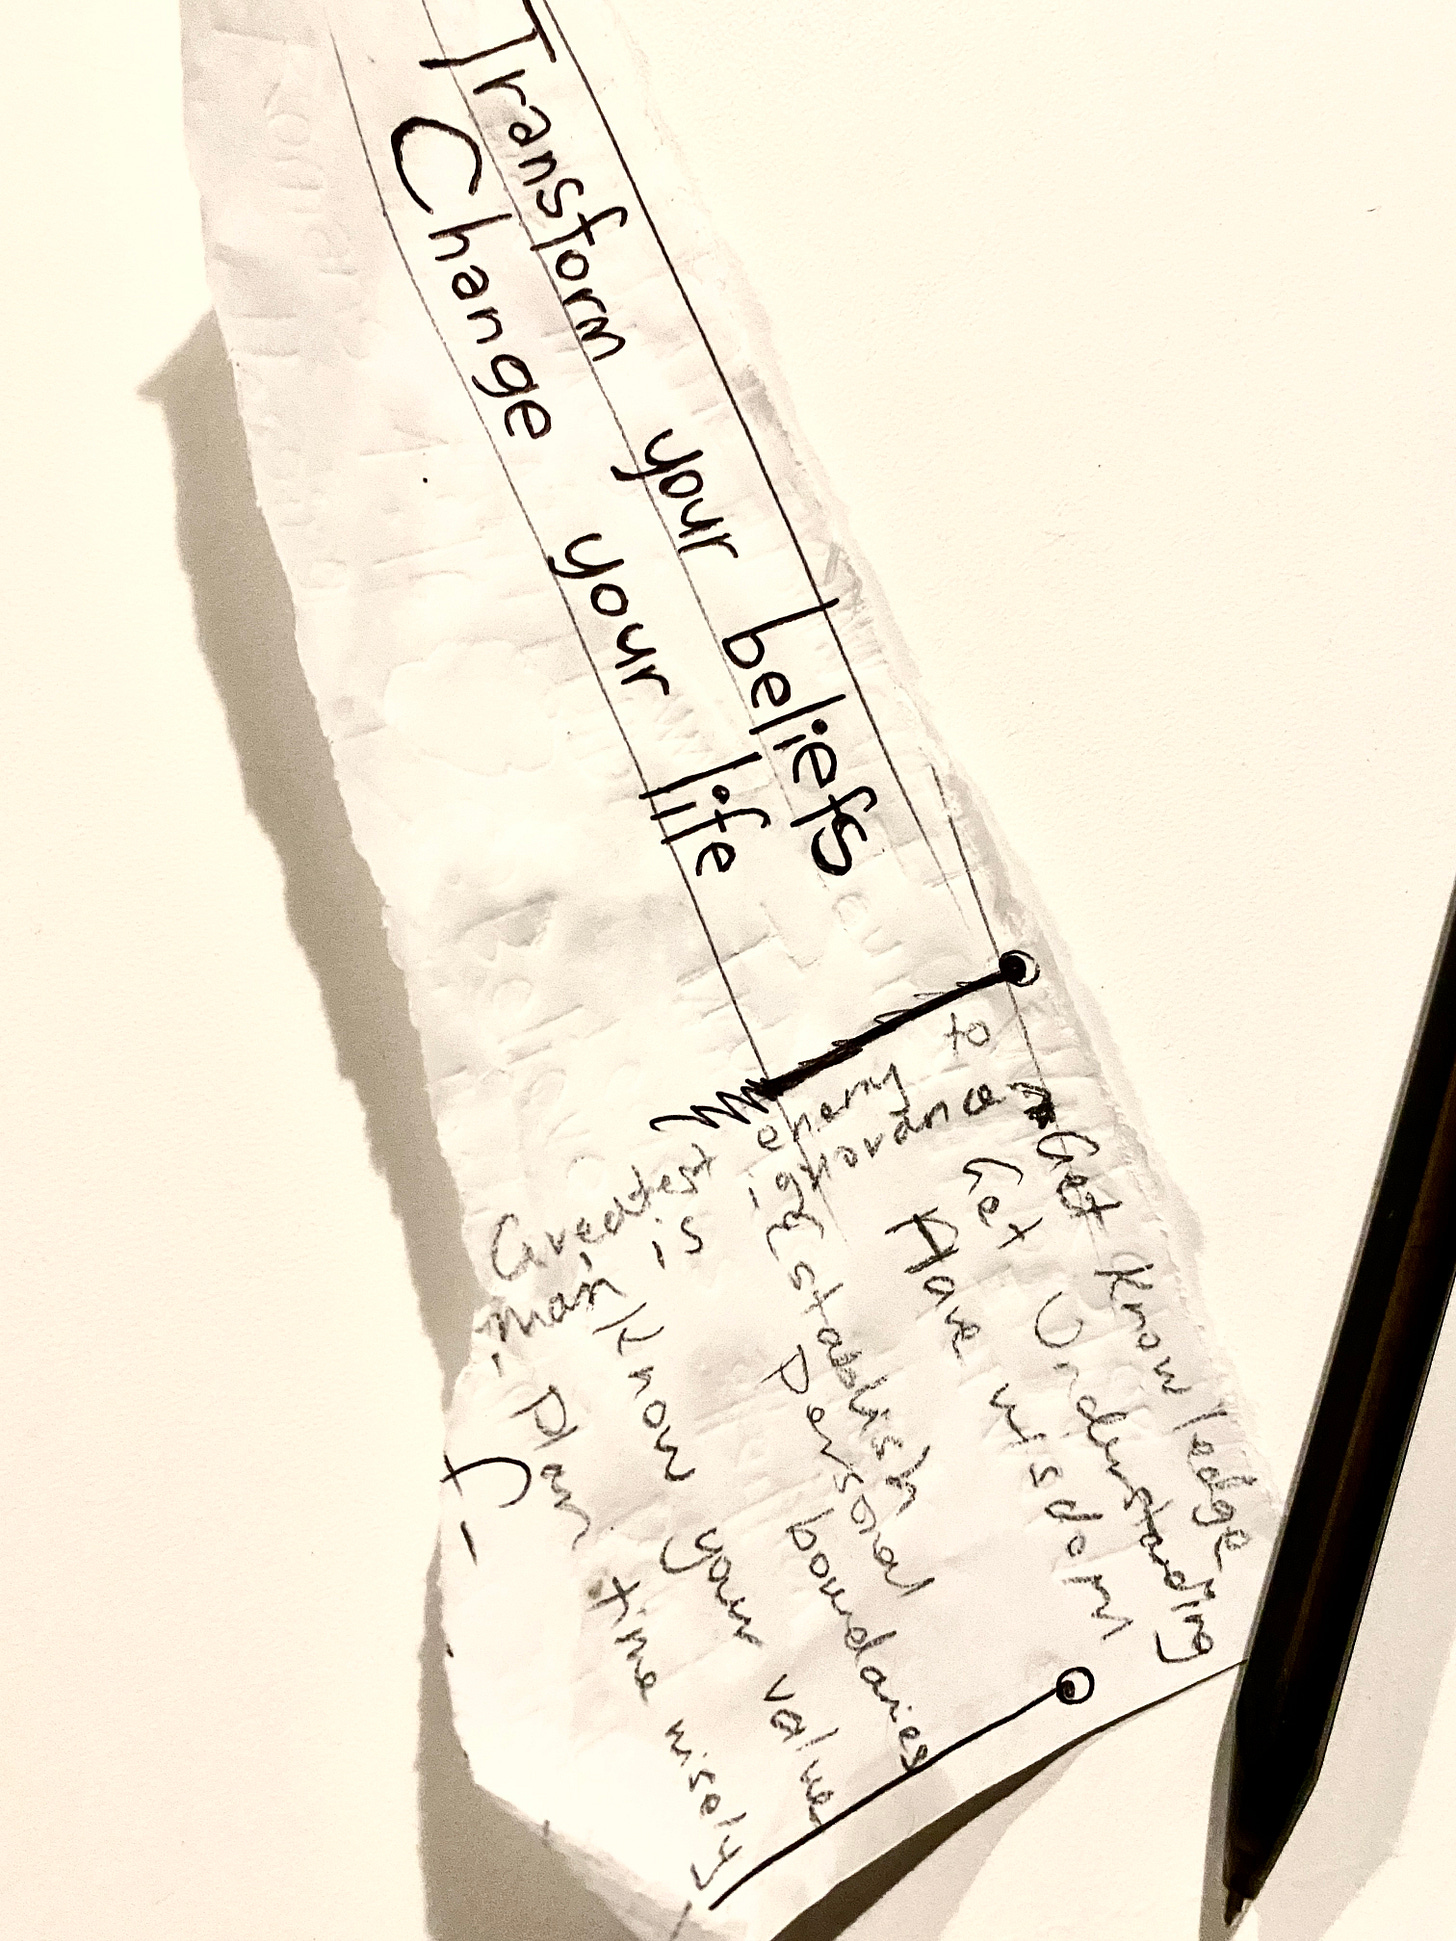 Transform your beliefs
Change your life
Greatest enemy to
man is ignorance
Get Knowledge
Get Understanding
Have wisdom
Establish
Personal boundaries
Know your value
Plan time wisely